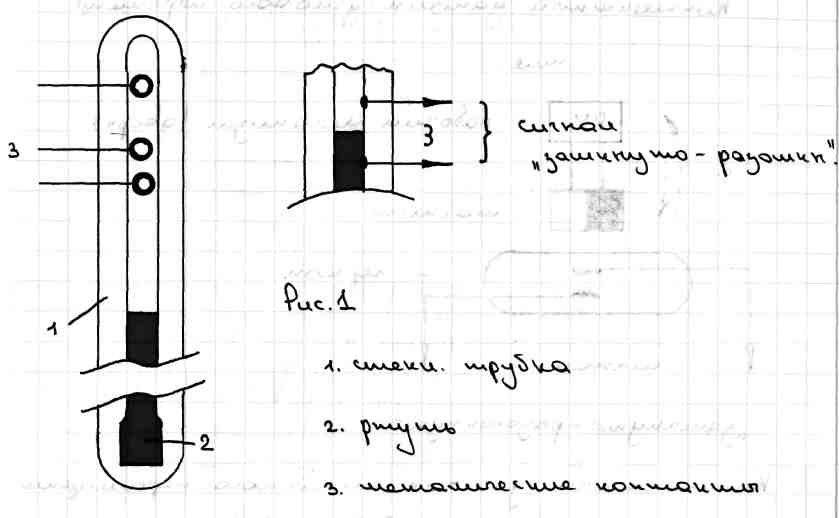 3
1
2
3
сигнал
„замкнуто - разомкн".
Рис. 1
1. стекл. трубка
2. ртуть
3. металические контакты